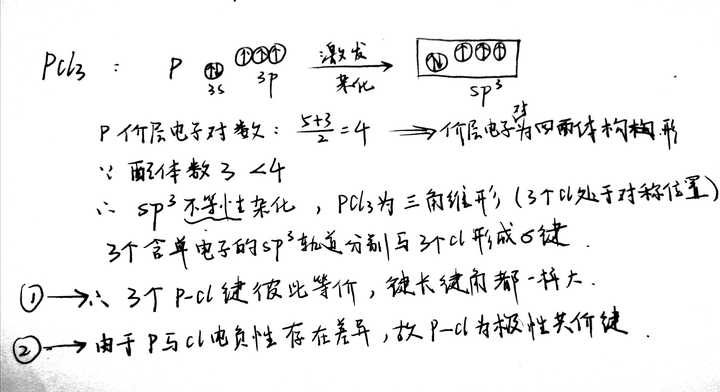 PCl₃ : P ⇅ ↑ ↑ ↑ 激发 ⇅ ↑ ↑ ↑
3s 3p 杂化 sp³
P 价层电子对数: (5+3)/2 = 4 ⟶ 价层电子对为四面体构型
∵ 配体数 3 < 4
∴ sp³ 不等性杂化, PCl₃为三角锥形 (3个Cl处于对称位置)
3个含单电子的sp³轨道分别与3个Cl形成σ键.
① → ∴ 3个P-Cl键彼此等价, 键长键角都一样大.
② → 由于P与Cl电负性存在差异, 故P-Cl为极性共价键.